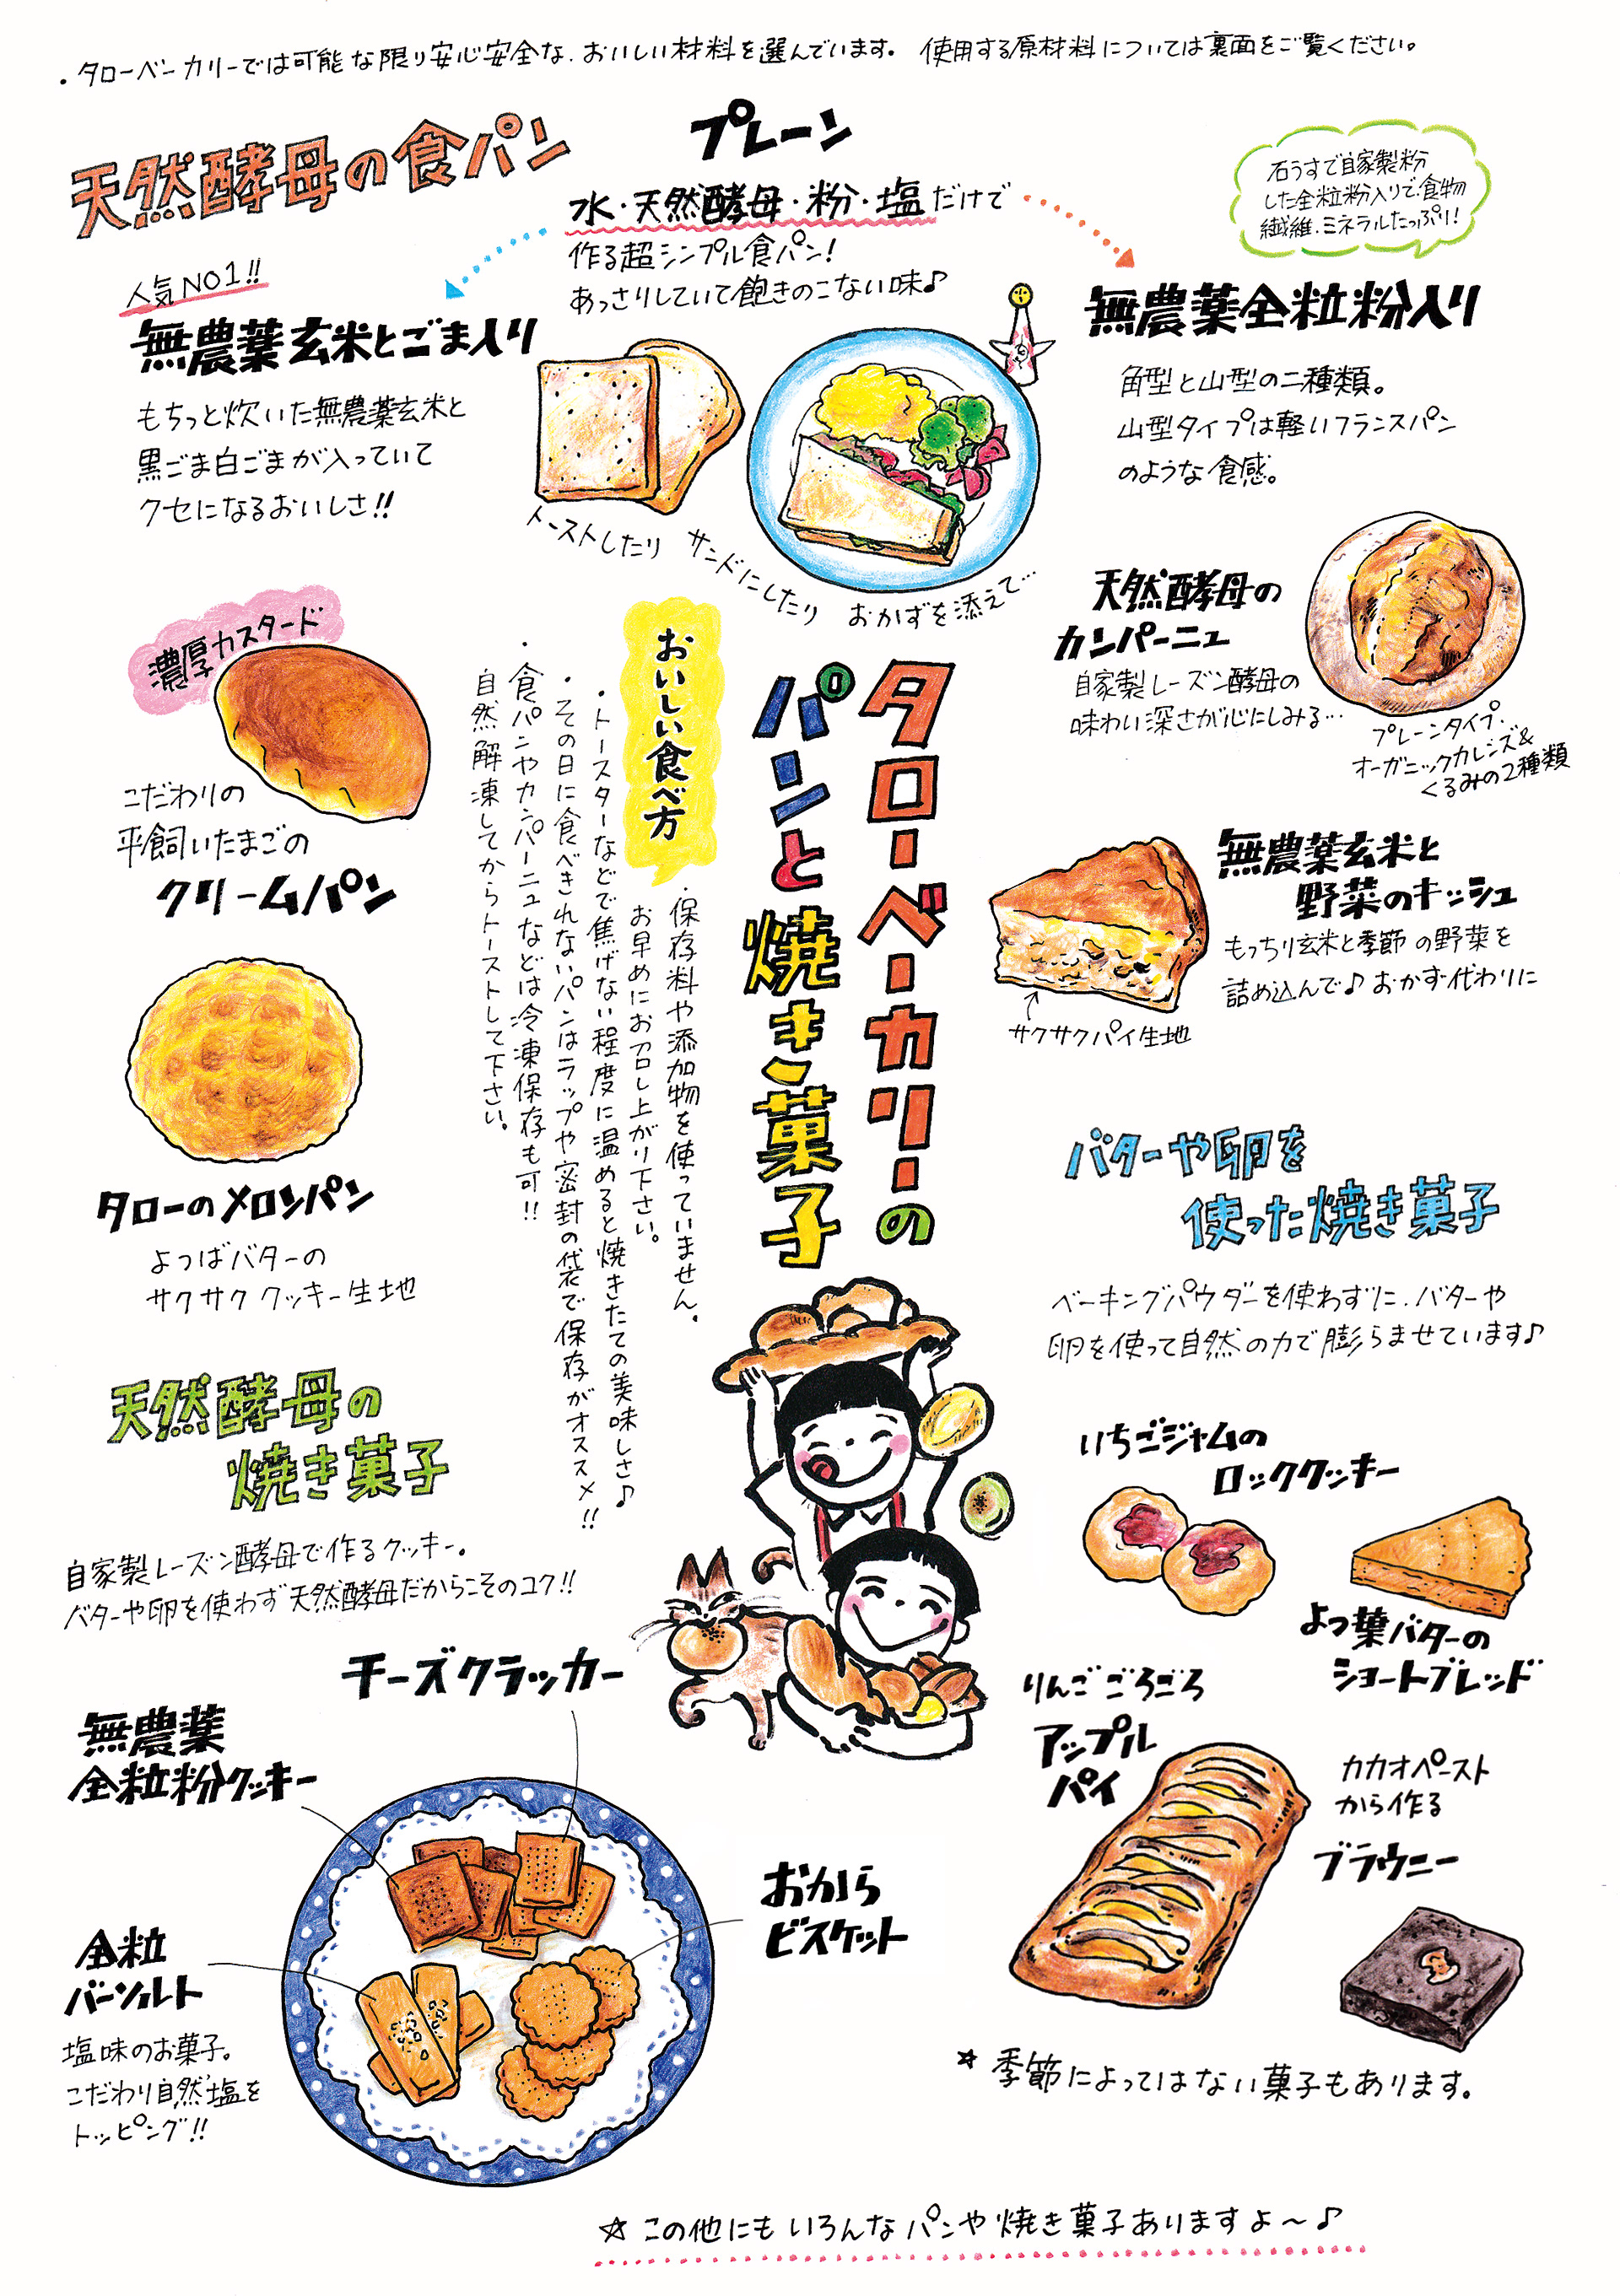 ・タローベーカリーでは可能な限り安心安全な、おいしい材料を選んでいます。 使用する原材料については裏面をご覧ください。
天然酵母の食パン
プレーン
水・天然酵母・粉・塩だけで
作る超シンプル食パン!
あっさりしていて飽きのこない味♪
石うすで自家製粉
した全粒粉入りで、食物
繊維、ミネラルたっぷり!
人気NO1!!
無農薬玄米とごま入り
もちっと炊いた無農薬玄米と
黒ごま白ごまが入っていて
クセになるおいしさ!!
無農薬全粒粉入り
角型と山型の二種類。
山型タイプは軽いフランスパン
のような食感。
トーストしたり サンドにしたり おかずを添えて…
天然酵母の
カンパーニュ
自家製レーズン酵母の
味わい深さが心にしみる…
プレーンタイプ・
オーガニックカレンズ&
くるみの2種類
タローベーカリーの
パンと焼き菓子
おいしい食べ方
・保存料や添加物を使っていません。
お早めにお召し上がり下さい。
・トースターなどで焦げない程度に温めると焼きたての美味しさ♪
・その日に食べきれないパンはラップや密封の袋で保存がオススメ!!
・食パンやカンパーニュなどは冷凍保存も可!!
自然解凍してからトーストして下さい。
濃厚カスタード
こだわりの
平飼いたまごの
クリームパン
タローのメロンパン
よつばバターの
サクサククッキー生地
無農薬玄米と
野菜のキッシュ
もっちり玄米と季節の野菜を
詰め込んで♪おかず代わりに
サクサクパイ生地
天然酵母の
焼き菓子
自家製レーズン酵母で作るクッキー。
バターや卵を使わず天然酵母だからこそのコク!!
チーズクラッカー
無農薬
全粒粉クッキー
全粒
バーソルト
塩味のお菓子。
こだわり自然塩を
トッピング!!
おから
ビスケット
バターや卵を
使った焼き菓子
ベーキングパウダーを使わずに、バターや
卵を使って自然の力で膨らませています♪
いちごジャムの
ロッククッキー
よつ葉バターの
ショートブレッド
りんごごろごろ
アップル
パイ
カカオペースト
から作る
ブラウニー
☆ 季節によってはない菓子もあります。
☆ この他にもいろんなパンや焼き菓子ありますよ〜♪